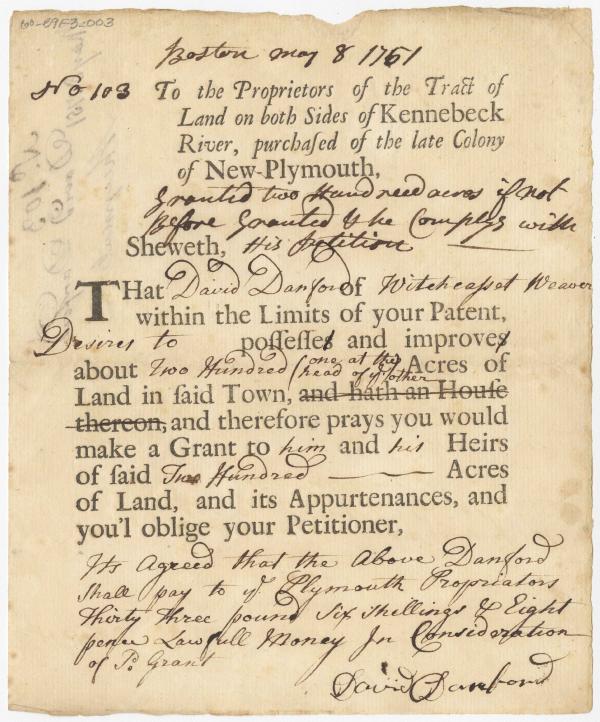 60-89F3-003
Boston may 8 1761
No 103 To the Proprietors of the Tract of
Land on both Sides of Kennebeck
River, purchaſed of the late Colony
of New-Plymouth,
Granted two Hundreed acres if not
Before Granted & he Complys with
Sheweth, His Petition
THat David Danford of Witcheasset Weaver
within the Limits of your Patent,
Desires to poſſeſſes and improves
about Two Hundred (one at the Acres of
head of ye other
Land in ſaid Town, and hath an Houſe
thereon, and therefore prays you would
make a Grant to him and his Heirs
of ſaid Two Hundred Acres
of Land, and its Appurtenances, and
you'l oblige your Petitioner,
Its Agreed that the Above Danford
Shall pay to ye Plymouth Propriators
Thirty three pound Six Shellings & Eight
pence Lawfull Money In Consideration
of Grant
David Danford